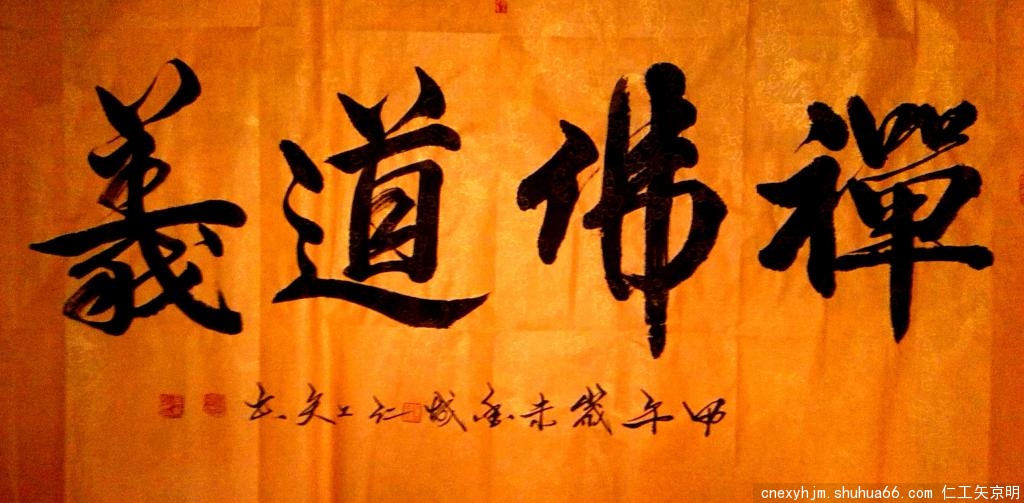 禪佛道義
甲午歲末金城仁工矢书
cnexyhjm.shuhua66.com 仁工矢京明